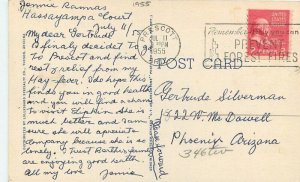 Jennie Raimas 1955
Hassayampa Court
July 11/
My dear Gertrude:
I finaly decided to go
to Prescot and find
rest & relief from my
Hay-fever. I do hope this
finds you in good health
and you will find a chance
to visit Delphin. She is
much better and I am
sure, she will apreciate
company because she is so
lonely. I trust Bertha family
are enjoying good health.
All my love Jennie
PRESCOTT
JUL
PM
1955
ARIZ.
Remember. Only you can
PREVENT
FOREST FIRES
POST CARD
Gertrude Silverman
1322 W. Mc Dowell
Phoenix Arizona
Please forward